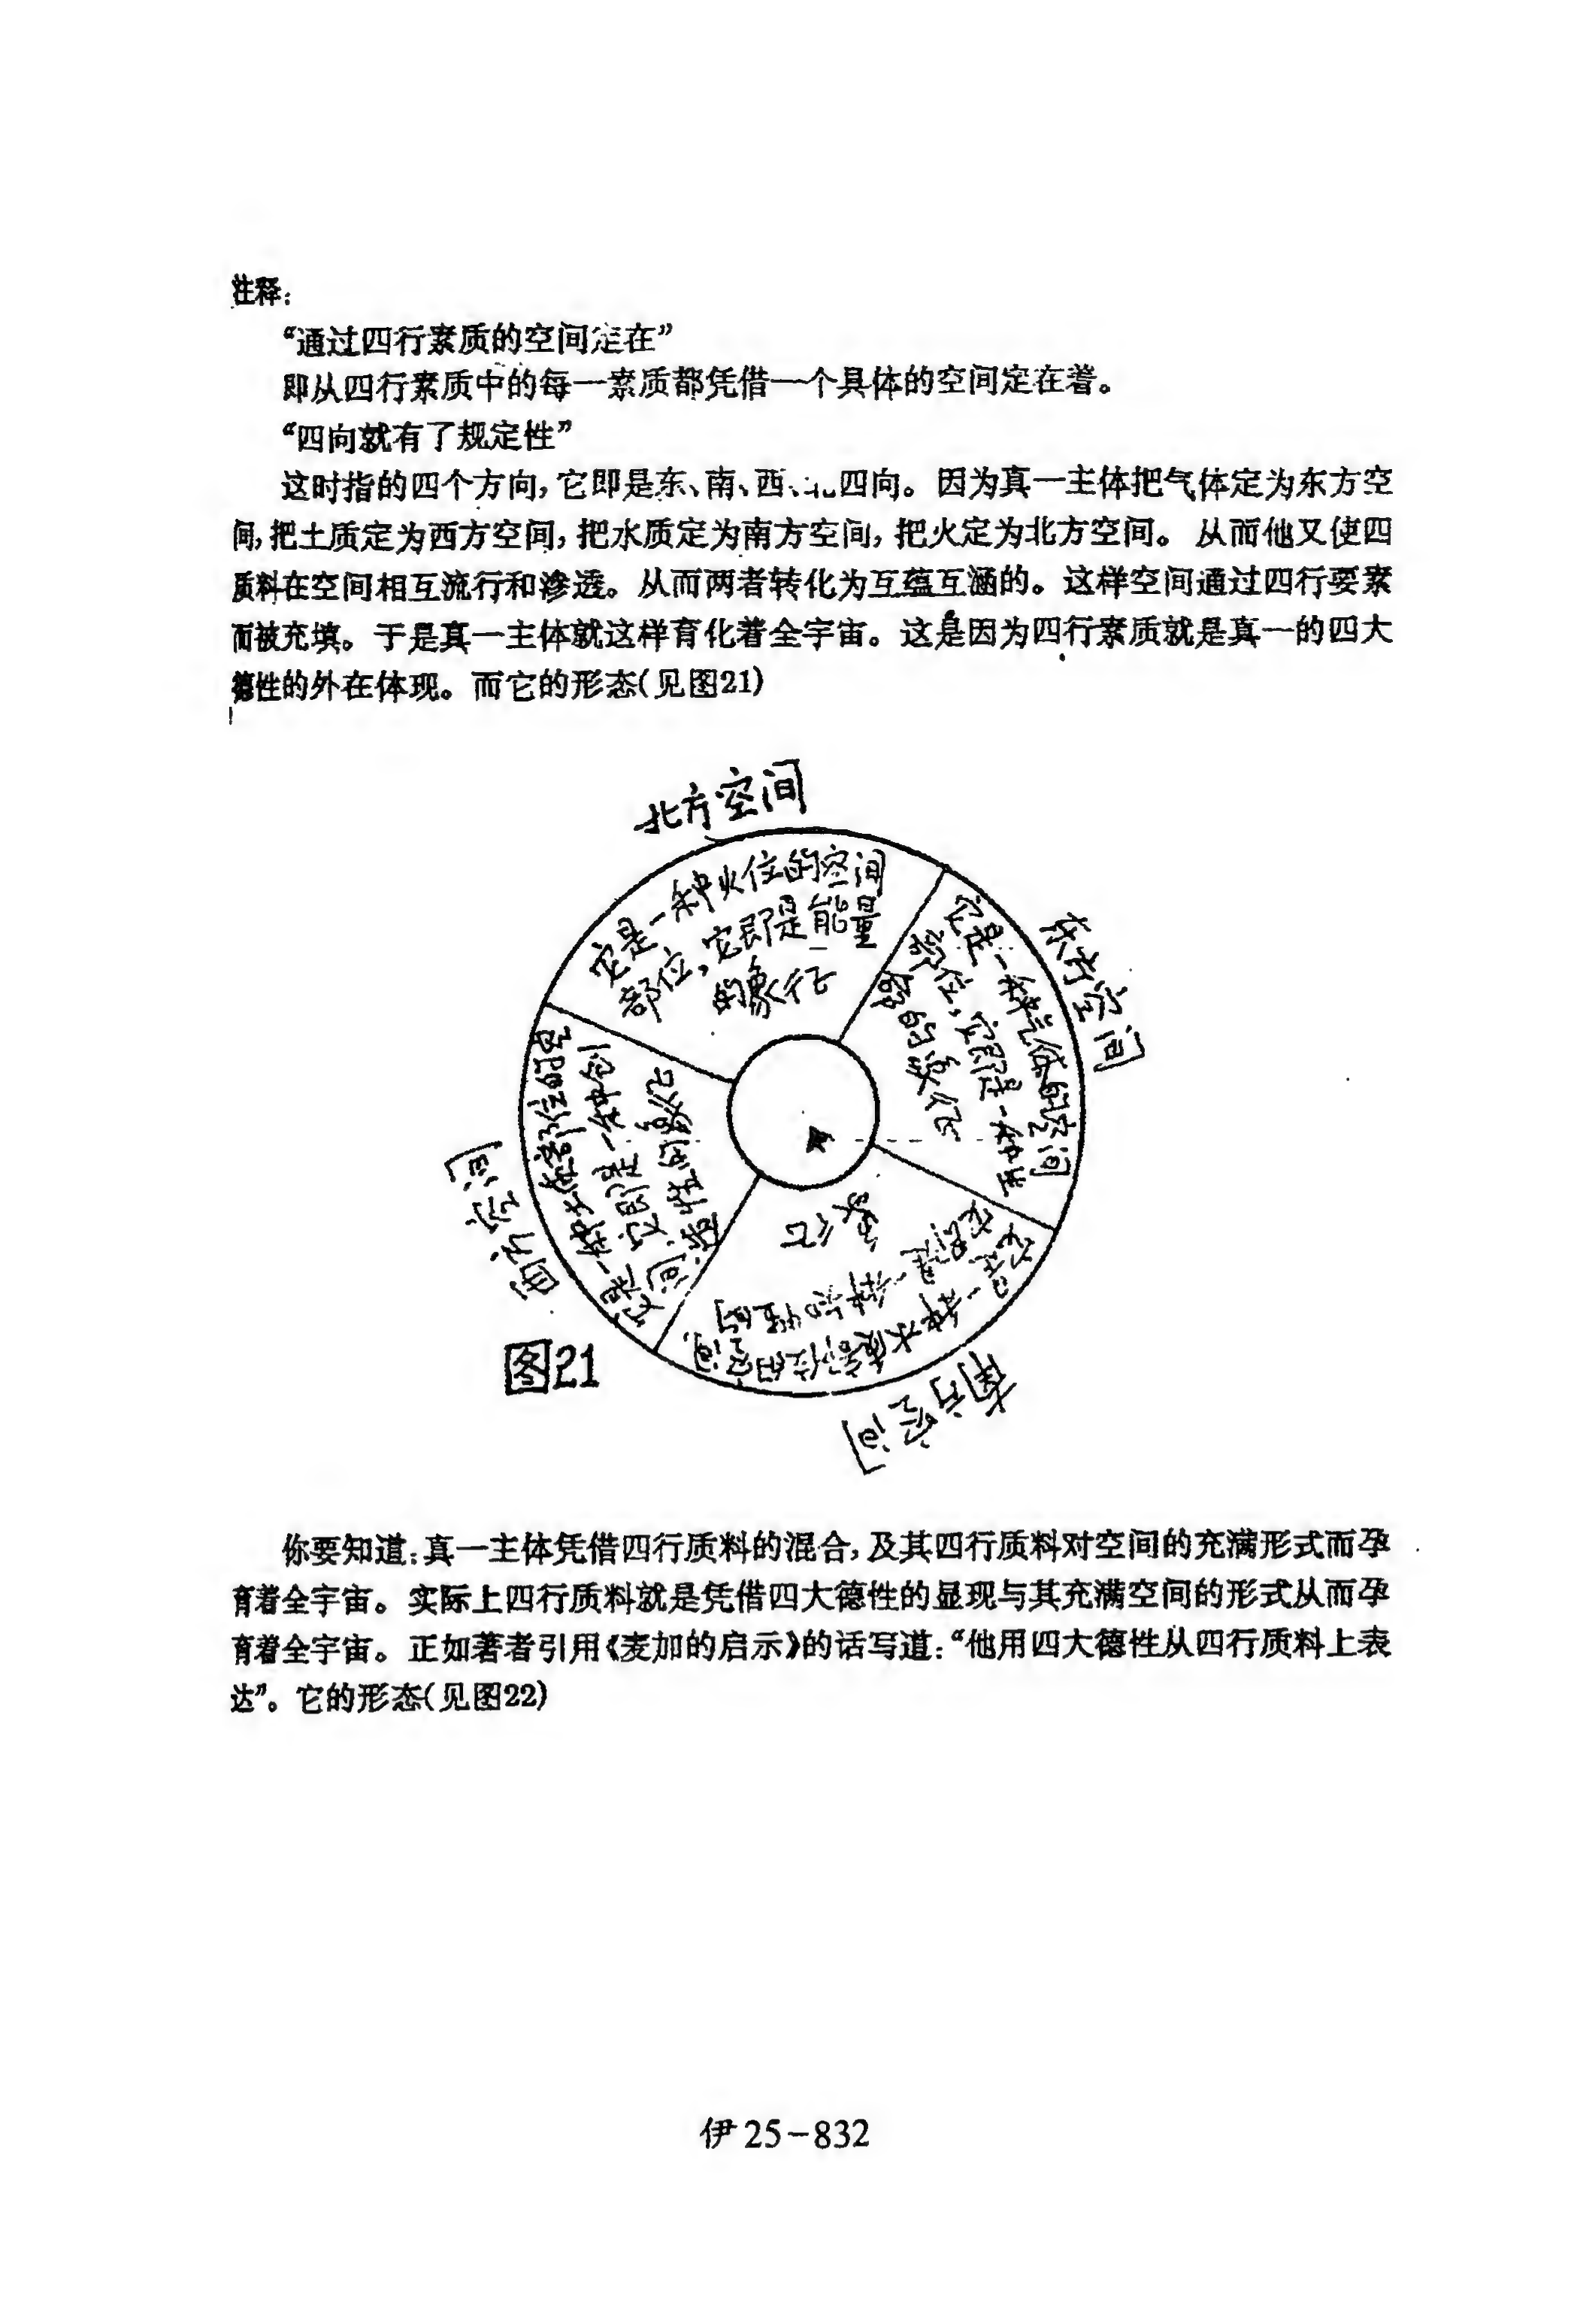 注释：
“通过四行素质的空间定在”
即从四行素质中的每一素质都凭借一个具体的空间定在着。
“四向就有了规定性”
这时指的四个方向，它即是东、南、西、北四向。因为真一主体把气体定为东方空
间，把土质定为西方空间，把水质定为南方空间，把火定为北方空间。从而他又使四
质料在空间相互流行和渗透。从而两者转化为互蕴互涵的。这样空间通过四行要素
而被充填。于是真一主体就这样育化着全宇宙。这是因为四行素质就是真一的四大
德性的外在体现。而它的形态（见图21）
北方空间
它是一种火位的空间
部位，它即是能量
的象征
东方空间
它是一种气体的空间
部位，它即是一种生
的象征
南方空间
它是一种水质部位的空间，
它即是一种知性的
象征
方空间
它是一种部位的空
间，它则是一种创
性的象征
图21
你要知道：真一主体凭借四行质料的混合，及其四行质料对空间的充满形式而孕
育着全宇宙。实际上四行质料就是凭借四大德性的显现与其充满空间的形式从而孕
育着全宇宙。正如著者引用《麦加的启示》的话写道：“他用四大德性从四行质料上表
达”。它的形态（见图22）
伊25-832